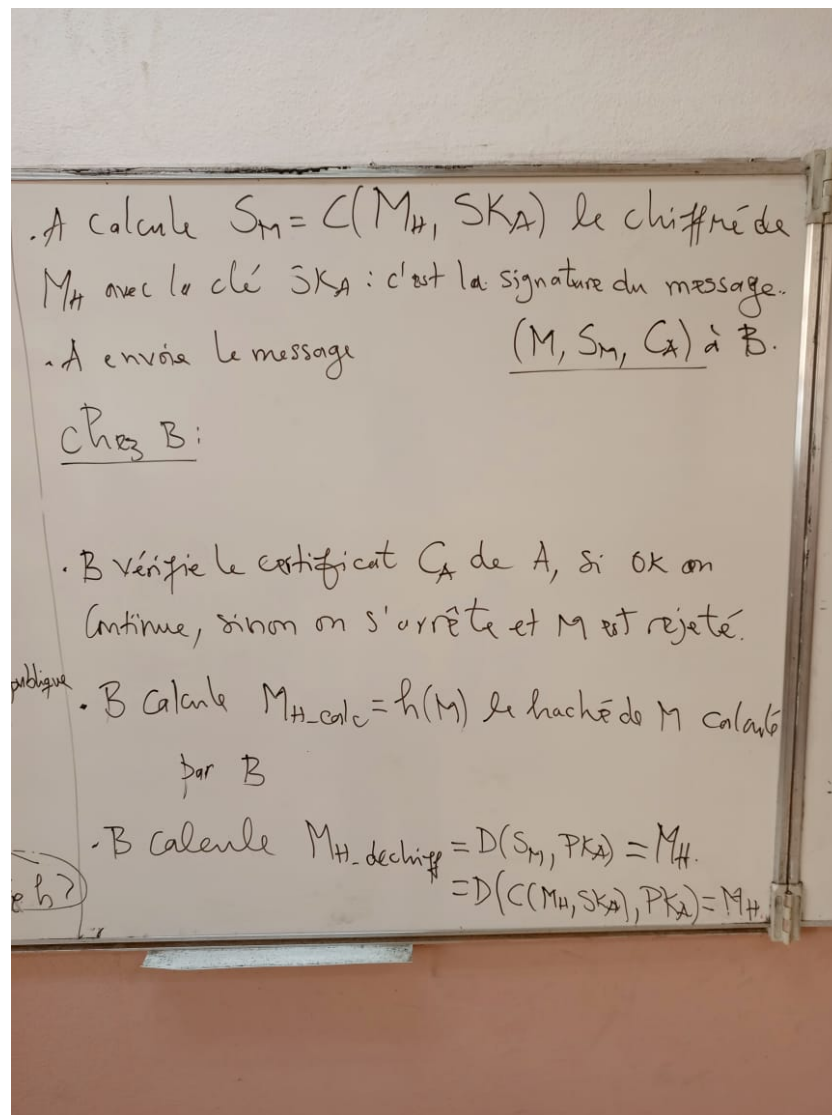 . A calcule S_M = C(M_H, SK_A) le chiffré de
M_H avec la clé SK_A : c'est la signature du message.
. A envoie le message (M, S_M, C_A) à B.
Chez B :
. B vérifie le certificat C_A de A, si OK on
Continue, sinon on s'arrête et M est rejeté.
publique
. B Calcule M_H_calc = h(M) le haché de M calculé
par B
. B calcule M_H_dechiff = D(S_M, PK_A) = M_H.
= D(C(M_H, SK_A), PK_A) = M_H.
e h ?